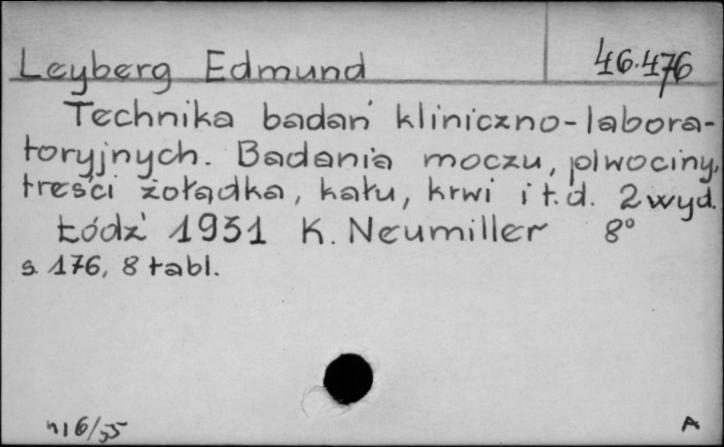 Leyberg Edmund 46.476
Technika badań kliniczno-labora-
toryjnych. Badania moczu, plwociny,
treści żołądka, kału, krwi i t.d. 2 wyd.
Łódź 1931 K. Neumiller 8°
s. 176, 8 tabl.
n16/55 A